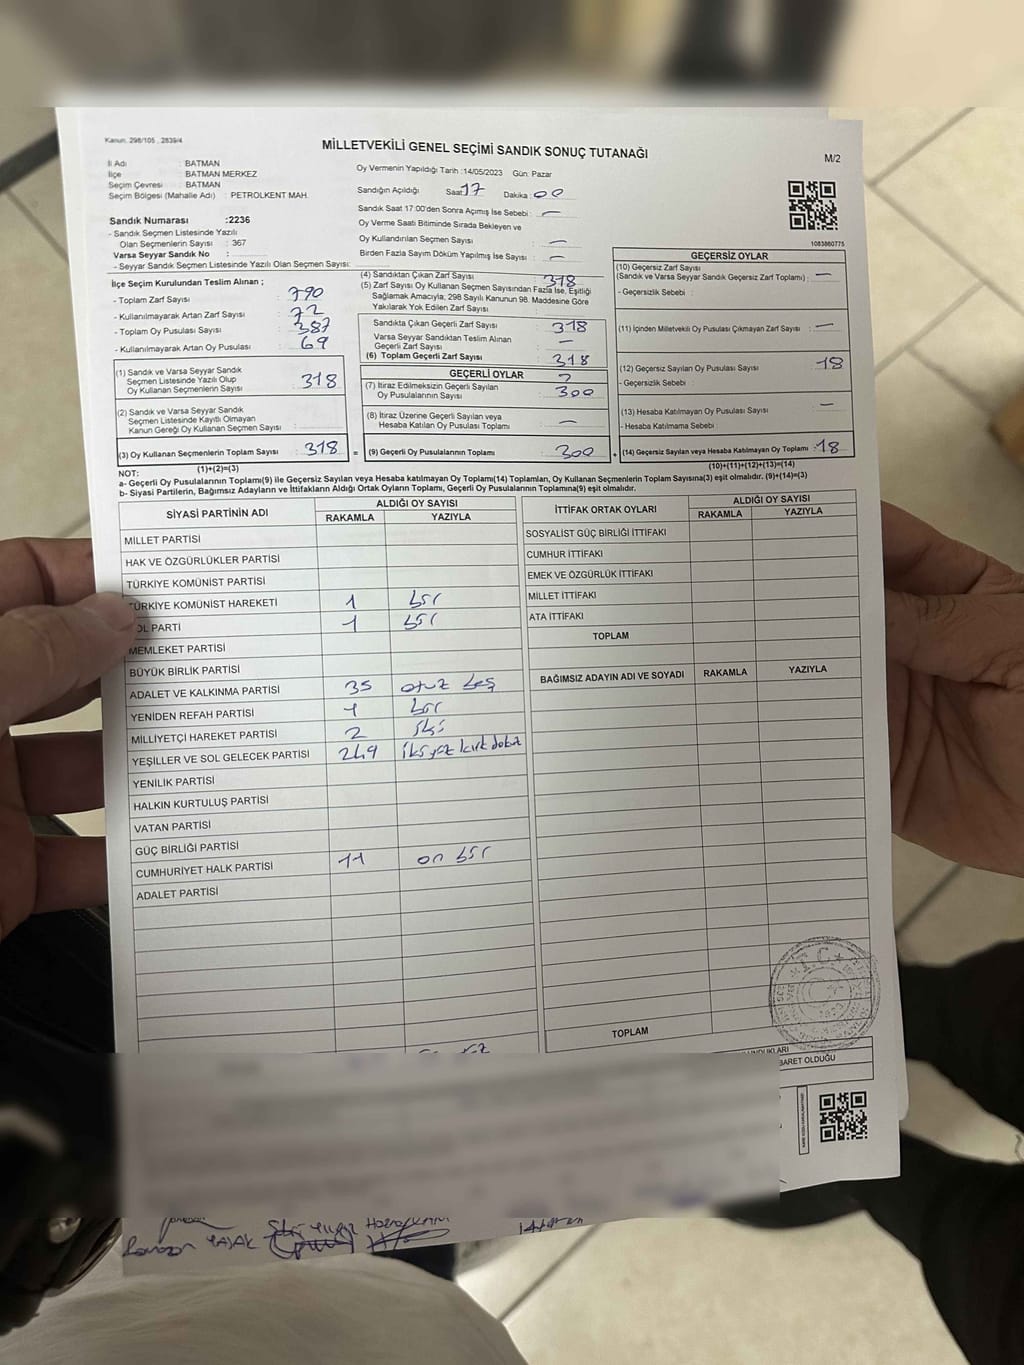 Kanun. 298/105 , 2839/4
MİLLETVEKİLİ GENEL SEÇİMİ SANDIK SONUÇ TUTANAĞI
M/2
İl Adı : BATMAN
İlçe : BATMAN MERKEZ
Seçim Çevresi : BATMAN
Seçim Bölgesi (Mahalle Adı) : PETROLKENT MAH.
Oy Vermenin Yapıldığı Tarih :14/05/2023 Gün: Pazar
Sandığın Açıldığı Saat 17 Dakika : 00
Sandık Saat 17:00'den Sonra Açımış İse Sebebi : —
Oy Verme Saati Bitiminde Sırada Bekleyen ve
Oy Kullandırılan Seçmen Sayısı : —
Birden Fazla Sayım Döküm Yapılmış İse Sayısı : —
1083860775
Sandık Numarası :2236
- Sandık Seçmen Listesinde Yazılı
Olan Seçmenlerin Sayısı : 367
Varsa Seyyar Sandık No :
- Seyyar Sandık Seçmen Listesinde Yazılı Olan Seçmen Sayısı:
İlçe Seçim Kurulundan Teslim Alınan ;
- Toplam Zarf Sayısı : 390
- Kullanılmayarak Artan Zarf Sayısı : 72
- Toplam Oy Pusulası Sayısı : 387
- Kullanılmayarak Artan Oy Pusulası : 69
(1) Sandık ve Varsa Seyyar Sandık
Seçmen Listesinde Yazılı Olup
Oy Kullanan Seçmenlerin Sayısı : 318
(2) Sandık ve Varsa Seyyar Sandık
Seçmen Listesinde Kayıtlı Olmayan
Kanun Gereği Oy Kullanan Seçmen Sayısı :
(3) Oy Kullanan Seçmenlerin Toplam Sayısı : 318
(4) Sandıktan Çıkan Zarf Sayısı : 318
(5) Zarf Sayısı Oy Kullanan Seçmen Sayısından Fazla İse, Eşitliği
Sağlamak Amacıyla, 298 Sayılı Kanunun 98. Maddesine Göre
Yakılarak Yok Edilen Zarf Sayısı :
Sandıkta Çıkan Geçerli Zarf Sayısı : 318
Varsa Seyyar Sandıktan Teslim Alınan
Geçerli Zarf Sayısı : —
(6) Toplam Geçerli Zarf Sayısı : 318
GEÇERLİ OYLAR
(7) İtiraz Edilmeksizin Geçerli Sayılan
Oy Pusulalarının Sayısı : 300
(8) İtiraz Üzerine Geçerli Sayılan veya
Hesaba Katılan Oy Pusulası Toplamı : —
= (9) Geçerli Oy Pusulalarının Toplamı : 300
GEÇERSİZ OYLAR
(10) Geçersiz Zarf Sayısı
(Sandık ve Varsa Seyyar Sandık Geçersiz Zarf Toplamı) : —
- Geçersizlik Sebebi :
(11) İçinden Milletvekili Oy Pusulası Çıkmayan Zarf Sayısı : —
(12) Geçersiz Sayılan Oy Pusulası Sayısı : 18
- Geçersizlik Sebebi :
(13) Hesaba Katılmayan Oy Pusulası Sayısı : —
- Hesaba Katılmama Sebebi :
+ (14) Geçersiz Sayılan veya Hesaba Katılmayan Oy Toplamı : 18
NOT: (1)+(2)=(3) (10)+(11)+(12)+(13)=(14)
a- Geçerli Oy Pusulalarının Toplamı(9) ile Geçersiz Sayılan veya Hesaba katılmayan Oy Toplamı(14) Toplamları, Oy Kullanan Seçmenlerin Toplam Sayısına(3) eşit olmalıdır. (9)+(14)=(3)
b- Siyasi Partilerin, Bağımsız Adayların ve İttifakların Aldığı Ortak Oyların Toplamı, Geçerli Oy Pusulalarının Toplamına(9) eşit olmalıdır.
SİYASİ PARTİNİN ADI ALDIĞI OY SAYISI
RAKAMLA YAZIYLA
MİLLET PARTİSİ
HAK VE ÖZGÜRLÜKLER PARTİSİ
TÜRKİYE KOMÜNİST PARTİSİ
TÜRKİYE KOMÜNİST HAREKETİ 1 bir
OL PARTİ 1 bir
MEMLEKET PARTİSİ
BÜYÜK BİRLİK PARTİSİ
ADALET VE KALKINMA PARTİSİ 35 otuz beş
YENİDEN REFAH PARTİSİ 1 bir
MİLLİYETÇİ HAREKET PARTİSİ 2 iki
YEŞİLLER VE SOL GELECEK PARTİSİ 249 iki yüz kırk dokuz
YENİLİK PARTİSİ
HALKIN KURTULUŞ PARTİSİ
VATAN PARTİSİ
GÜÇ BİRLİĞİ PARTİSİ
CUMHURİYET HALK PARTİSİ 11 on bir
ADALET PARTİSİ
İTTİFAK ORTAK OYLARI ALDIĞI OY SAYISI
RAKAMLA YAZIYLA
SOSYALİST GÜÇ BİRLİĞİ İTTİFAKI
CUMHUR İTTİFAKI
EMEK VE ÖZGÜRLÜK İTTİFAKI
MİLLET İTTİFAKI
ATA İTTİFAKI
TOPLAM
BAĞIMSIZ ADAYIN ADI VE SOYADI RAKAMLA YAZIYLA
TOPLAM
BARET OLDUĞU